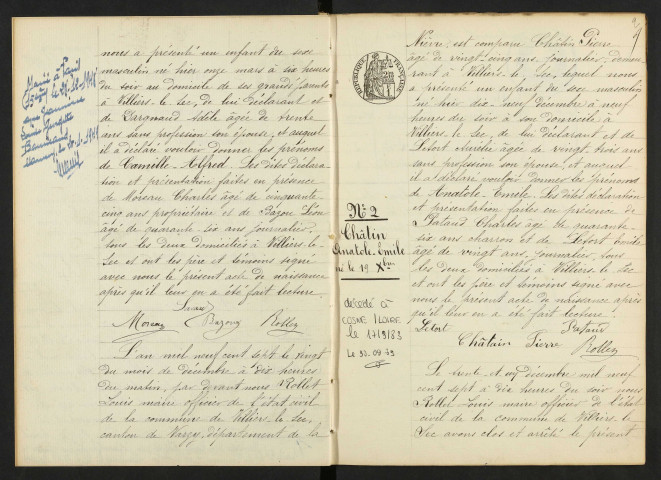 nous a présenté un enfant du sexe
masculin né hier onze mars à six heures
du soir au domicile de ses grands parents
à Villiers-le-Sec, de lui déclarant et
de Vargnaud Adèle âgée de trente
ans sans profession son épouse, et auquel
il a déclaré vouloir donner les prénoms
de Camille-Alfred. Les dites déclara
tion et présentation faites en présence
de Moreau Charles âgé de cinquante-
cinq ans propriétaire et de Bazou Léon
âgé de quarante-six ans journalier,
tous les deux domiciliés à Villiers-le-
Sec et ont les père et témoins signé
avec nous le présent acte de naissance
après qu'il leur en a été fait lecture.
Moreau Bazou Rollet
L'an mil neuf cent sept le vingt
du mois de décembre à dix heures
du matin, par devant nous Rollet
Louis maire officier de l'état civil
de la commune de Villiers-le-Sec,
canton de Varzy, département de la
Marié à Paril
RÉPUBLIQUE FRANÇAISE
N° 2
Châtin
Anatole-Emile
né le 19 Xbre
décédé à
COSNE / LOIRE
le
Nièvre, est comparu Châtin Pierre
âgé de vingt-cinq ans, journalier, demeu
rant à Villiers-le-Sec, lequel nous
a présenté un enfant du sexe masculin
né hier dix-neuf décembre à neuf
heures du soir à son domicile à
Villiers-le-Sec, de lui déclarant et de
Lefort Amélie âgée de vingt-trois ans
sans profession son épouse, et auquel
il a déclaré vouloir donner les prénoms
de Anatole-Emile. Les dites déclaration
et présentation faites en présence de
Pataud Charles âgé de quarante-
six ans charron et de Lefort Emile
âgé de vingt ans, journalier, tous
les deux domiciliés à Villiers-le-Sec
et ont les père et témoins signé avec
nous le présent acte de naissance après
qu'il leur en a été fait lecture.
Lefort Pataud
Châtain Pierre Rollet
Le trente et un décembre mil neuf
cent sept à dix heures du soir nous
Rollet Louis maire officier de l'état
civil de la commune de Villiers-le-
Sec avons clos et arrêté le présent